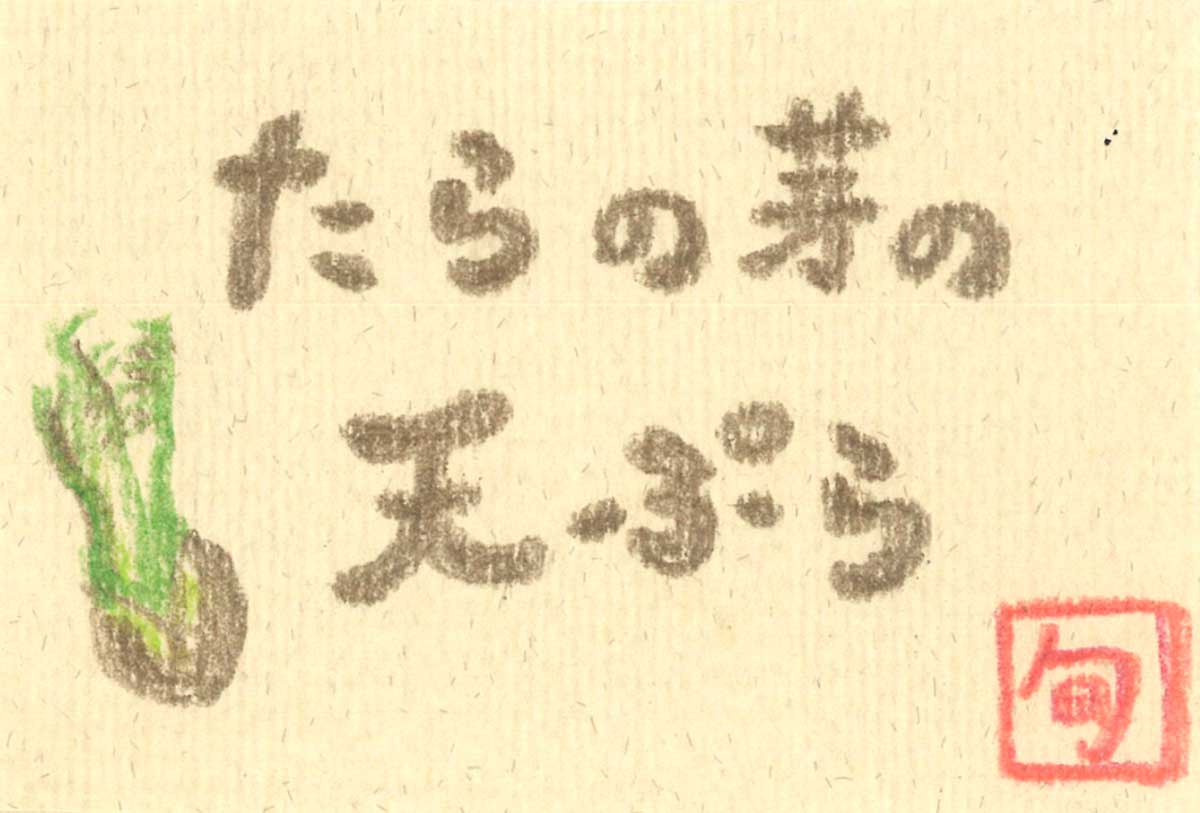 たらの芽の
天ぷら
旬